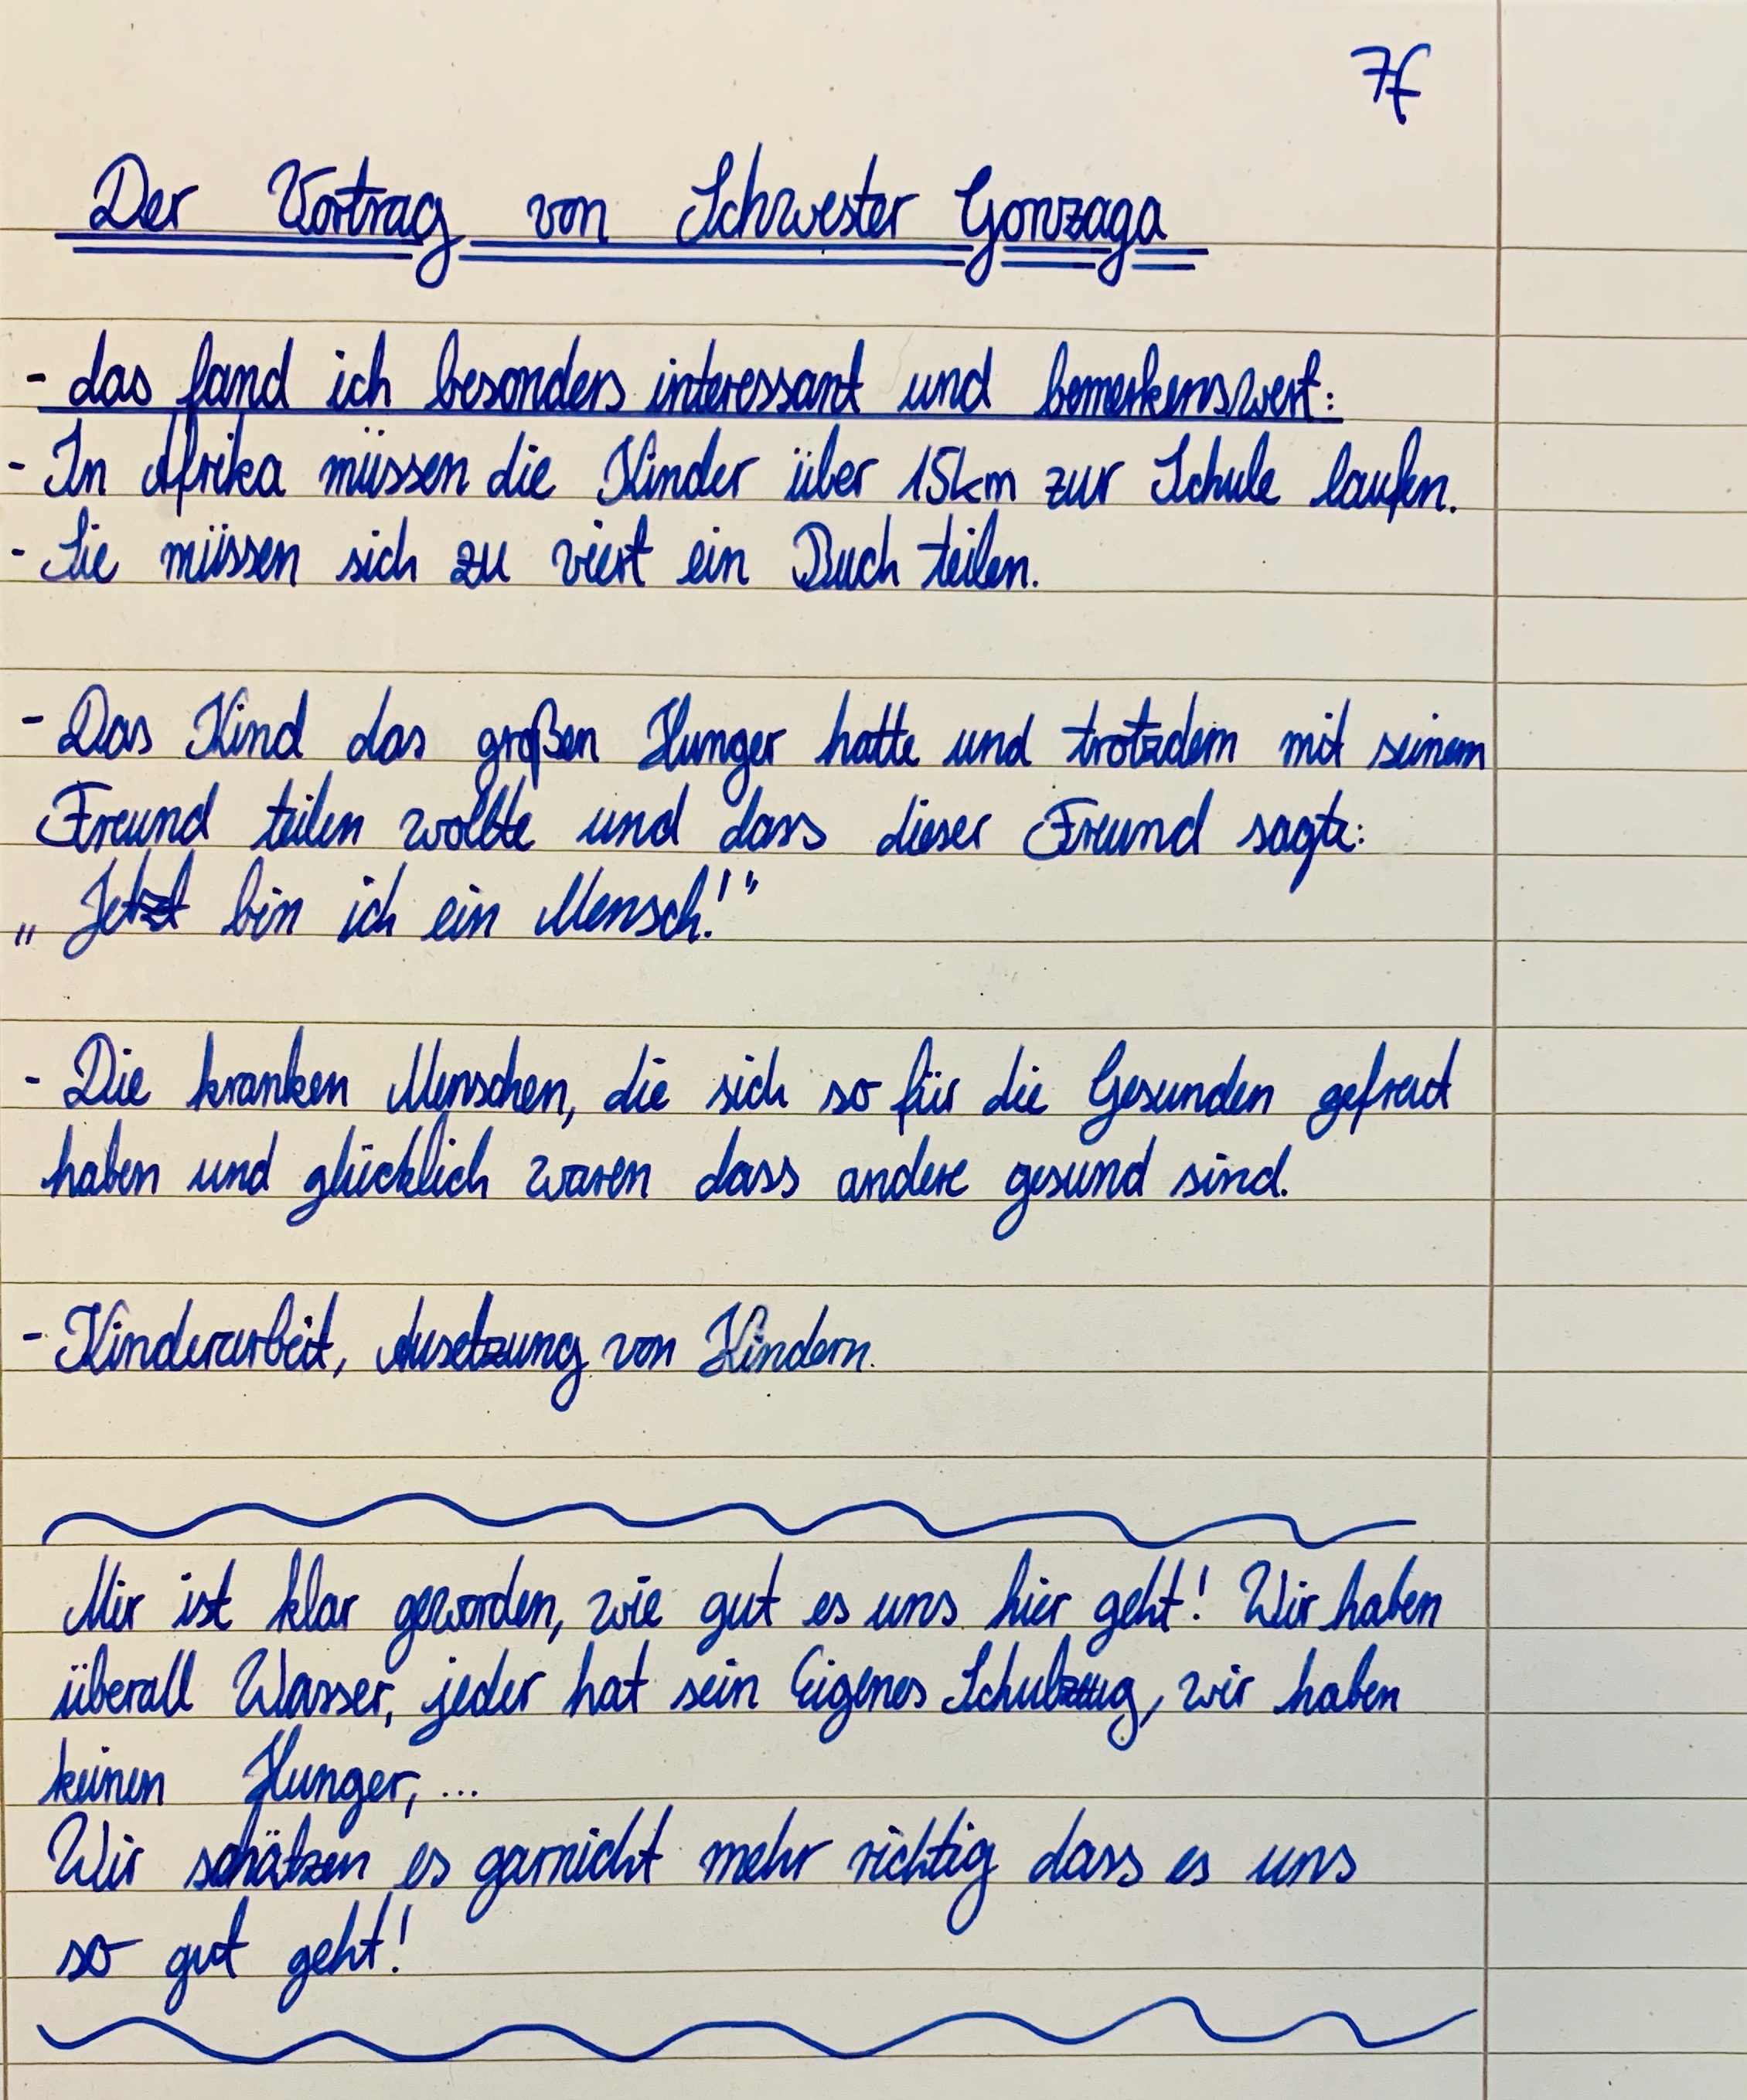 7f
Der Vortrag von Schwester Gonzaga
- das fand ich besonders interessant und bemerkenswert:
- In Afrika müssen die Kinder über 15km zur Schule laufen.
- Sie müssen sich zu viert ein Buch teilen.
- Das Kind das großen Hunger hatte und trotzdem mit seinem
Freund teilen wollte und dass dieser Freund sagte:
„Jetzt bin ich ein Mensch!“
- Die kranken Menschen, die sich so für die Gesunden gefreut
haben und glücklich waren dass andere gesund sind.
- Kinderarbeit, Ausetzung von Kindern.
Mir ist klar geworden, wie gut es uns hier geht! Wir haben
überall Wasser, jeder hat sein Eigenes Schulzeug, wir haben
keinen Hunger, ...
Wir schätzen es garnicht mehr richtig dass es uns
so gut geht!